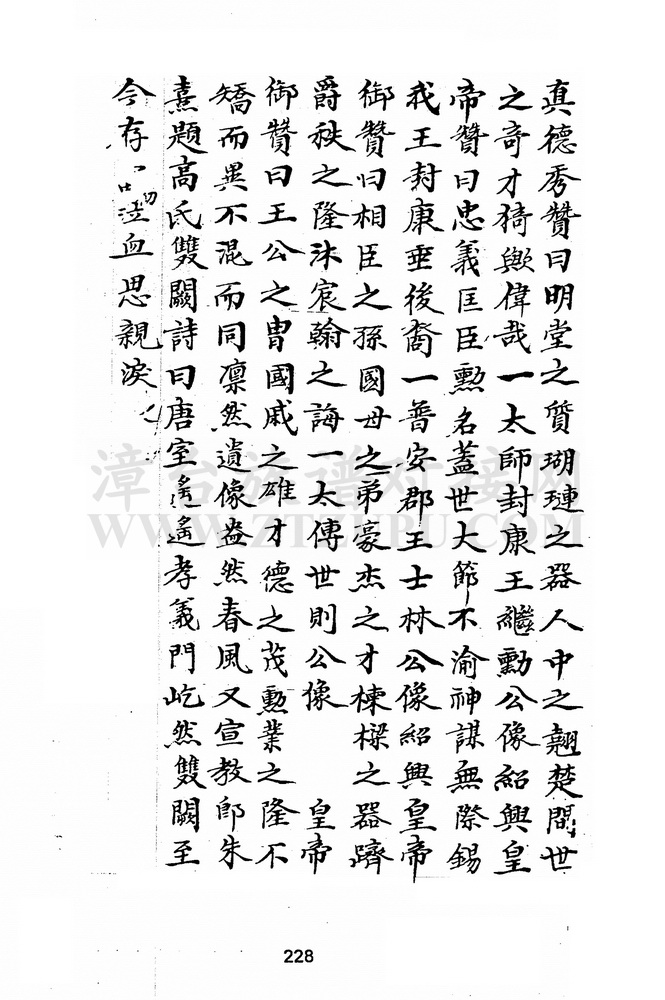 真德秀贊曰明堂之質瑚璉之器人中之翹楚間世
之奇才猗歟偉哉一太師封康王繼勳公像紹興皇
帝贊曰忠義匡臣勲名蓋世大節不渝神謀無際錫
我王封康垂後裔一普安郡王士林公像紹興皇帝
御贊曰相臣之孫國母之弟豪杰之才棟樑之器躋
爵秩之隆沐宸翰之誨一太傅世則公像 皇帝
御贊曰王公之冑國戚之雄才德之茂勲業之隆不
矯而異不混而同凛然遺像盎然春風又宣教郎朱
熹題高氏雙闕詩曰唐室遙遙孝義門屹然雙闕至
今存 泣血思親淚
漳台族谱对接网
WWW.ZTZUPU.COM
228